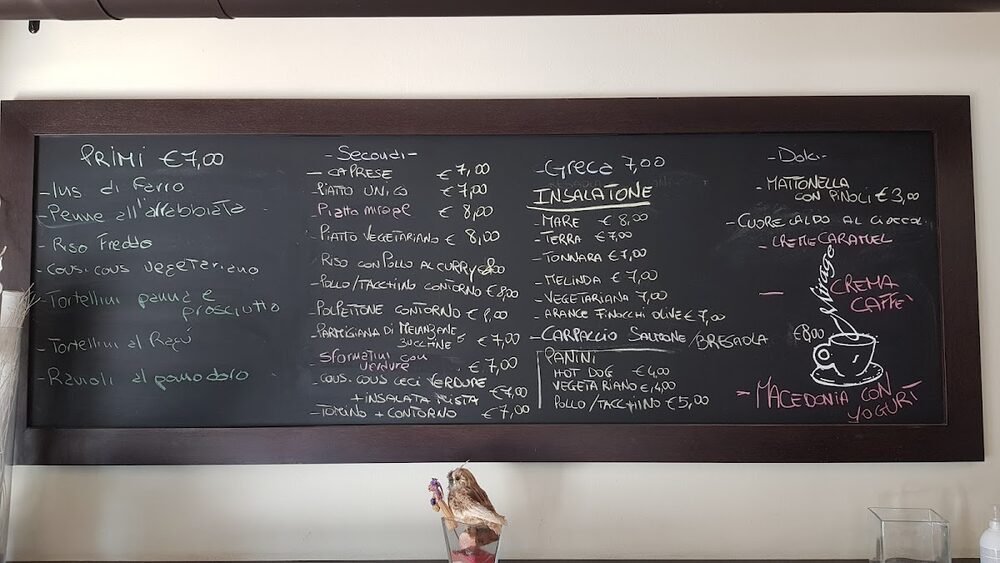 PRIMI €7,00
- Penne all'arrabbiata
- Riso Freddo
- Cous. cous vegetariano
- Tortellini panna e
prosciutto
- Tortellini al Ragù
- Ravioli al pomodoro
- Secondi -
- CAPRESE € 7,00
- PIATTO UNICO € 7,00
- Piatto mirage € 8,00
- PIATTO VEGETARIANO € 8,00
- RISO CON POLLO AL CURRY
- POLLO/TACCHINO CONTORNO € 8,00
- POLPETTONE CONTORNO € 8,00
- PARMIGIANA DI MELANZANE
ZUCCHINE € 7,00
- Sformatini con
verdure € 7,00
- COUS. COUS CECI VERDURE
+ INSALATA MISTA €7,00
- TOMINO + CONTORNO € 7,00
- Greca 7,00
INSALATONE
- MARE € 8,00
- TERRA € 7,00
- TONNARA € 7,00
- MELINDA € 7,00
- VEGETARIANA 7,00
- ARANCE FINOCCHI OLIVE € 7,00
- CARPACCIO SALMONE / BRESAOLA €8,00
PANINI
HOT DOG € 4,00
VEGETARIANO € 4,00
POLLO / TACCHINO € 5,00
- Dolci -
- MATTONELLA
CON PINOLI € 3,00
- CUORE CALDO AL CIOCCOL
- CREME CARAMEL
- CREMA
CAFFE'
Mirage
- MACEDONIA CON
YOGURT